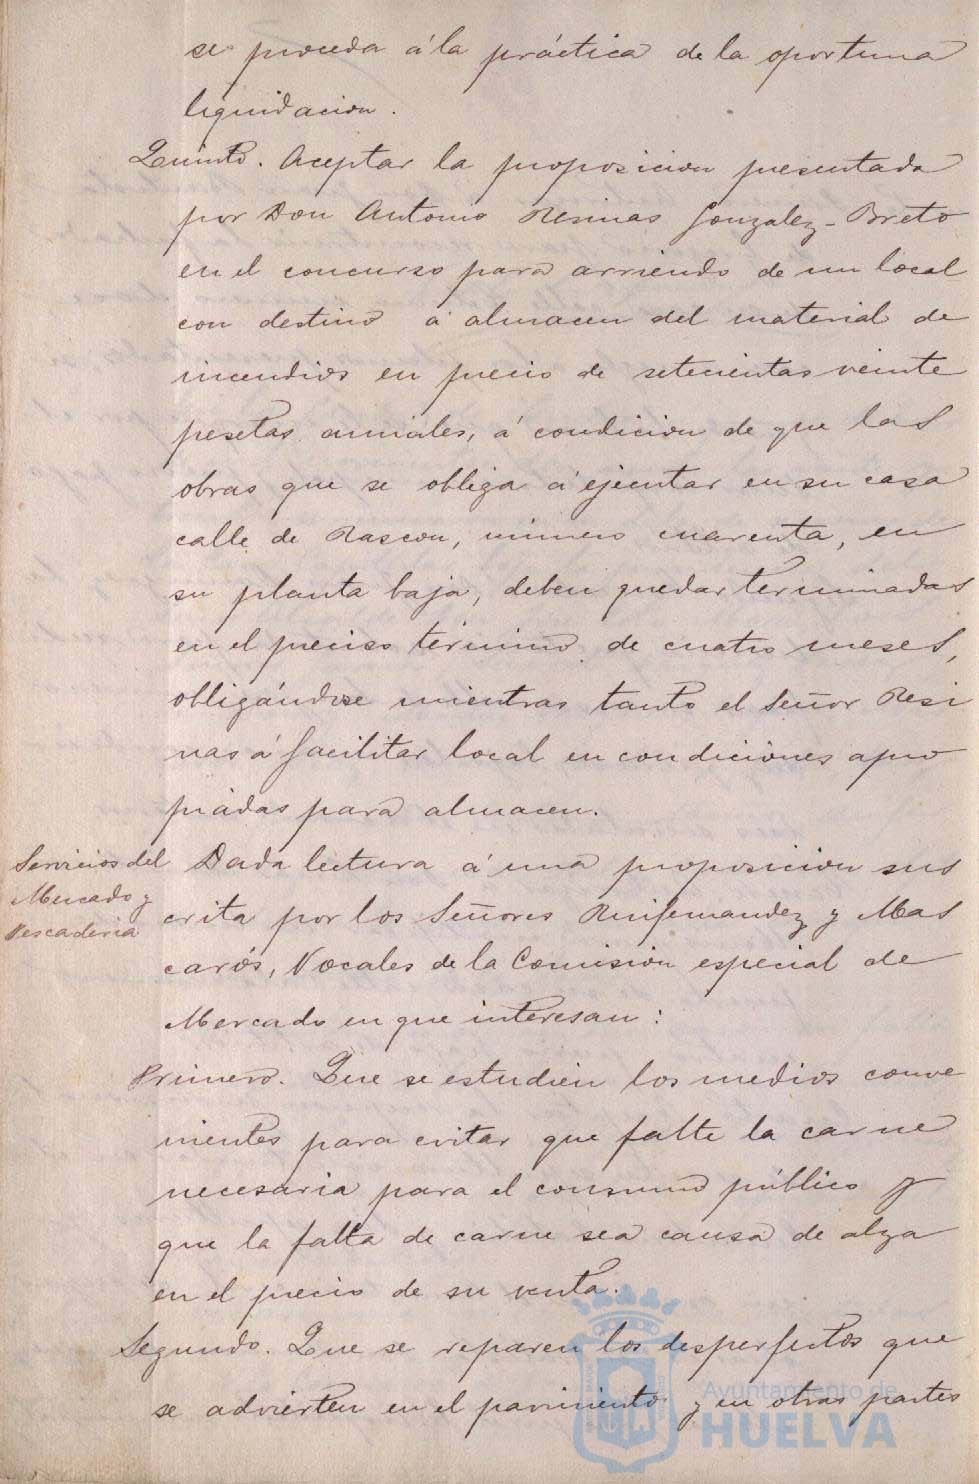 se proceda á la práctica de la oportuna
liquidacion.
Quinto. Aceptar la proposicion presentada
por Don Antonio Resinas Gonzalez-Breto
en el concurso para arriendo de un local
con destino á almacen del material de
incendios en precio de setecientas veinte
pesetas anuales, á condicion de que las
obras que se obliga á ejecutar en su casa
calle de Rascon, número cuarenta, en
su planta baja, deben quedar terminadas
en el preciso término de cuatro meses,
obligándose mientras tanto el Señor Resi
nas á facilitar local en condiciones apro
piadas para almacen.
Servicios del
Mercado y
Pescaderia
Dada lectura á una proposicion sus
crita por los Señores Ruifernandez y Mas
carós, Vocales de la Comision especial de
Mercado en que interesan:
Primero. Que se estudien los medios conve
nientes para evitar que falte la carne
necesaria para el consumo público y
que la falta de carne sea causa de alza
en el precio de su venta.
Segundo. Que se reparen los desperfectos que
se advierten en el pavimento y en otras partes
Ayuntamiento de
HUELVA